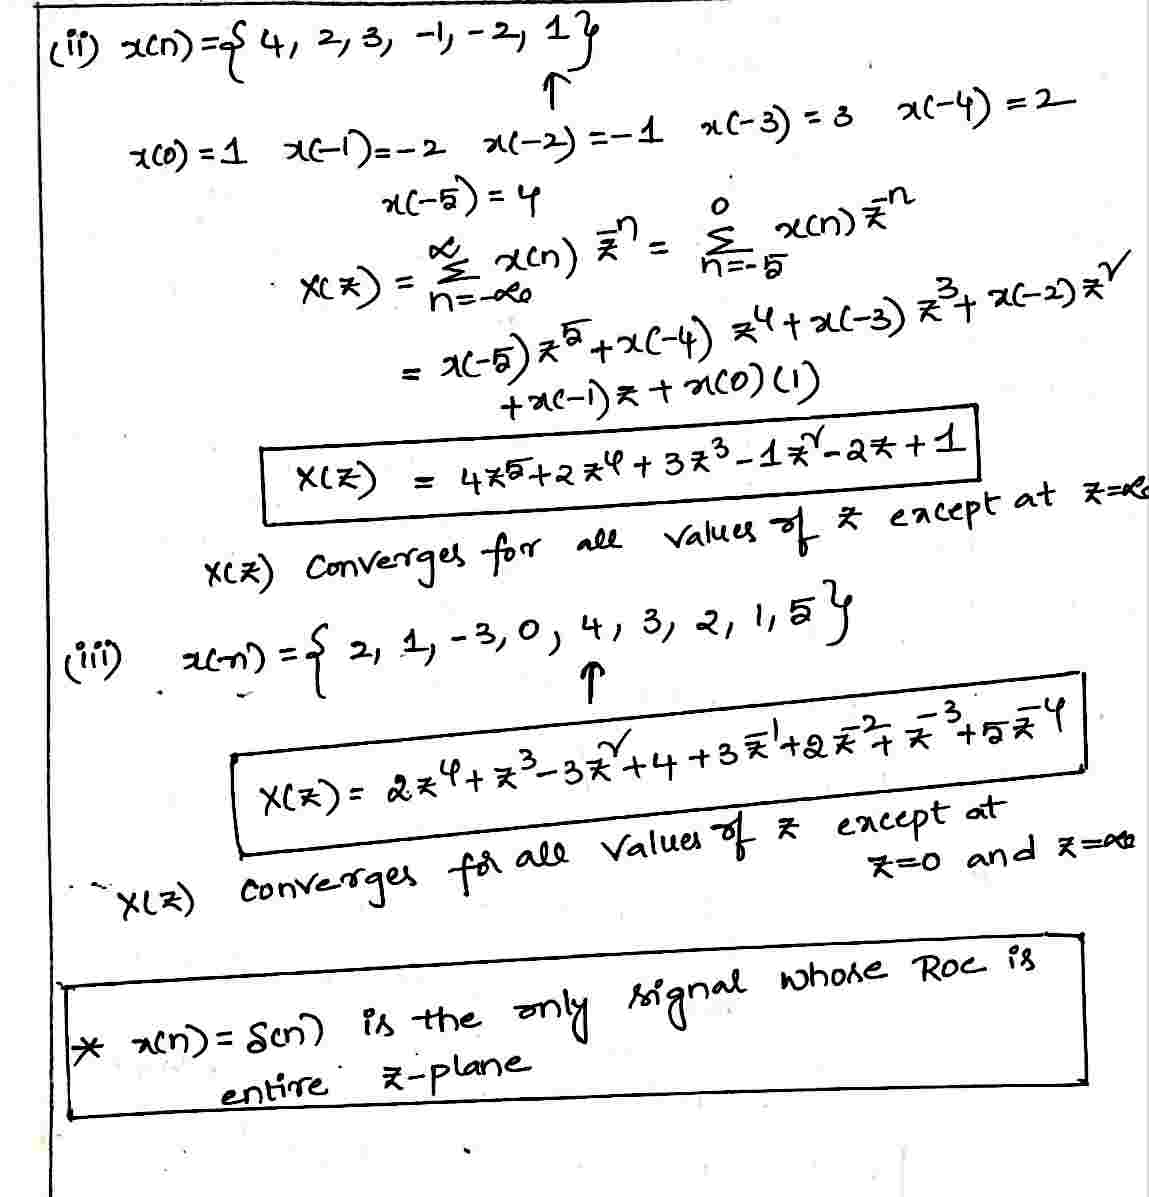 (ii) x(n) = { 4, 2, 3, -1, -2, 1 }
↑
x(0) = 1 x(-1) = -2 x(-2) = -1 x(-3) = 3 x(-4) = 2
x(-5) = 4
X(z) = ∑_{n=-∞}^{∞} x(n) z^{-n} = ∑_{n=-5}^{0} x(n) z^{-n}
= x(-5) z^5 + x(-4) z^4 + x(-3) z^3 + x(-2) z^2
+ x(-1) z + x(0) (1)
X(z) = 4z^5 + 2z^4 + 3z^3 - 1z^2 - 2z + 1
X(z) converges for all values of z except at z=∞
(iii) x(n) = { 2, 1, -3, 0, 4, 3, 2, 1, 5 }
↑
X(z) = 2z^4 + z^3 - 3z^2 + 4 + 3z^{-1} + 2z^{-2} + z^{-3} + 5z^{-4}
X(z) converges for all values of z except at
z=0 and z=∞
* x(n) = δ(n) is the only signal whose ROC is
entire z-plane